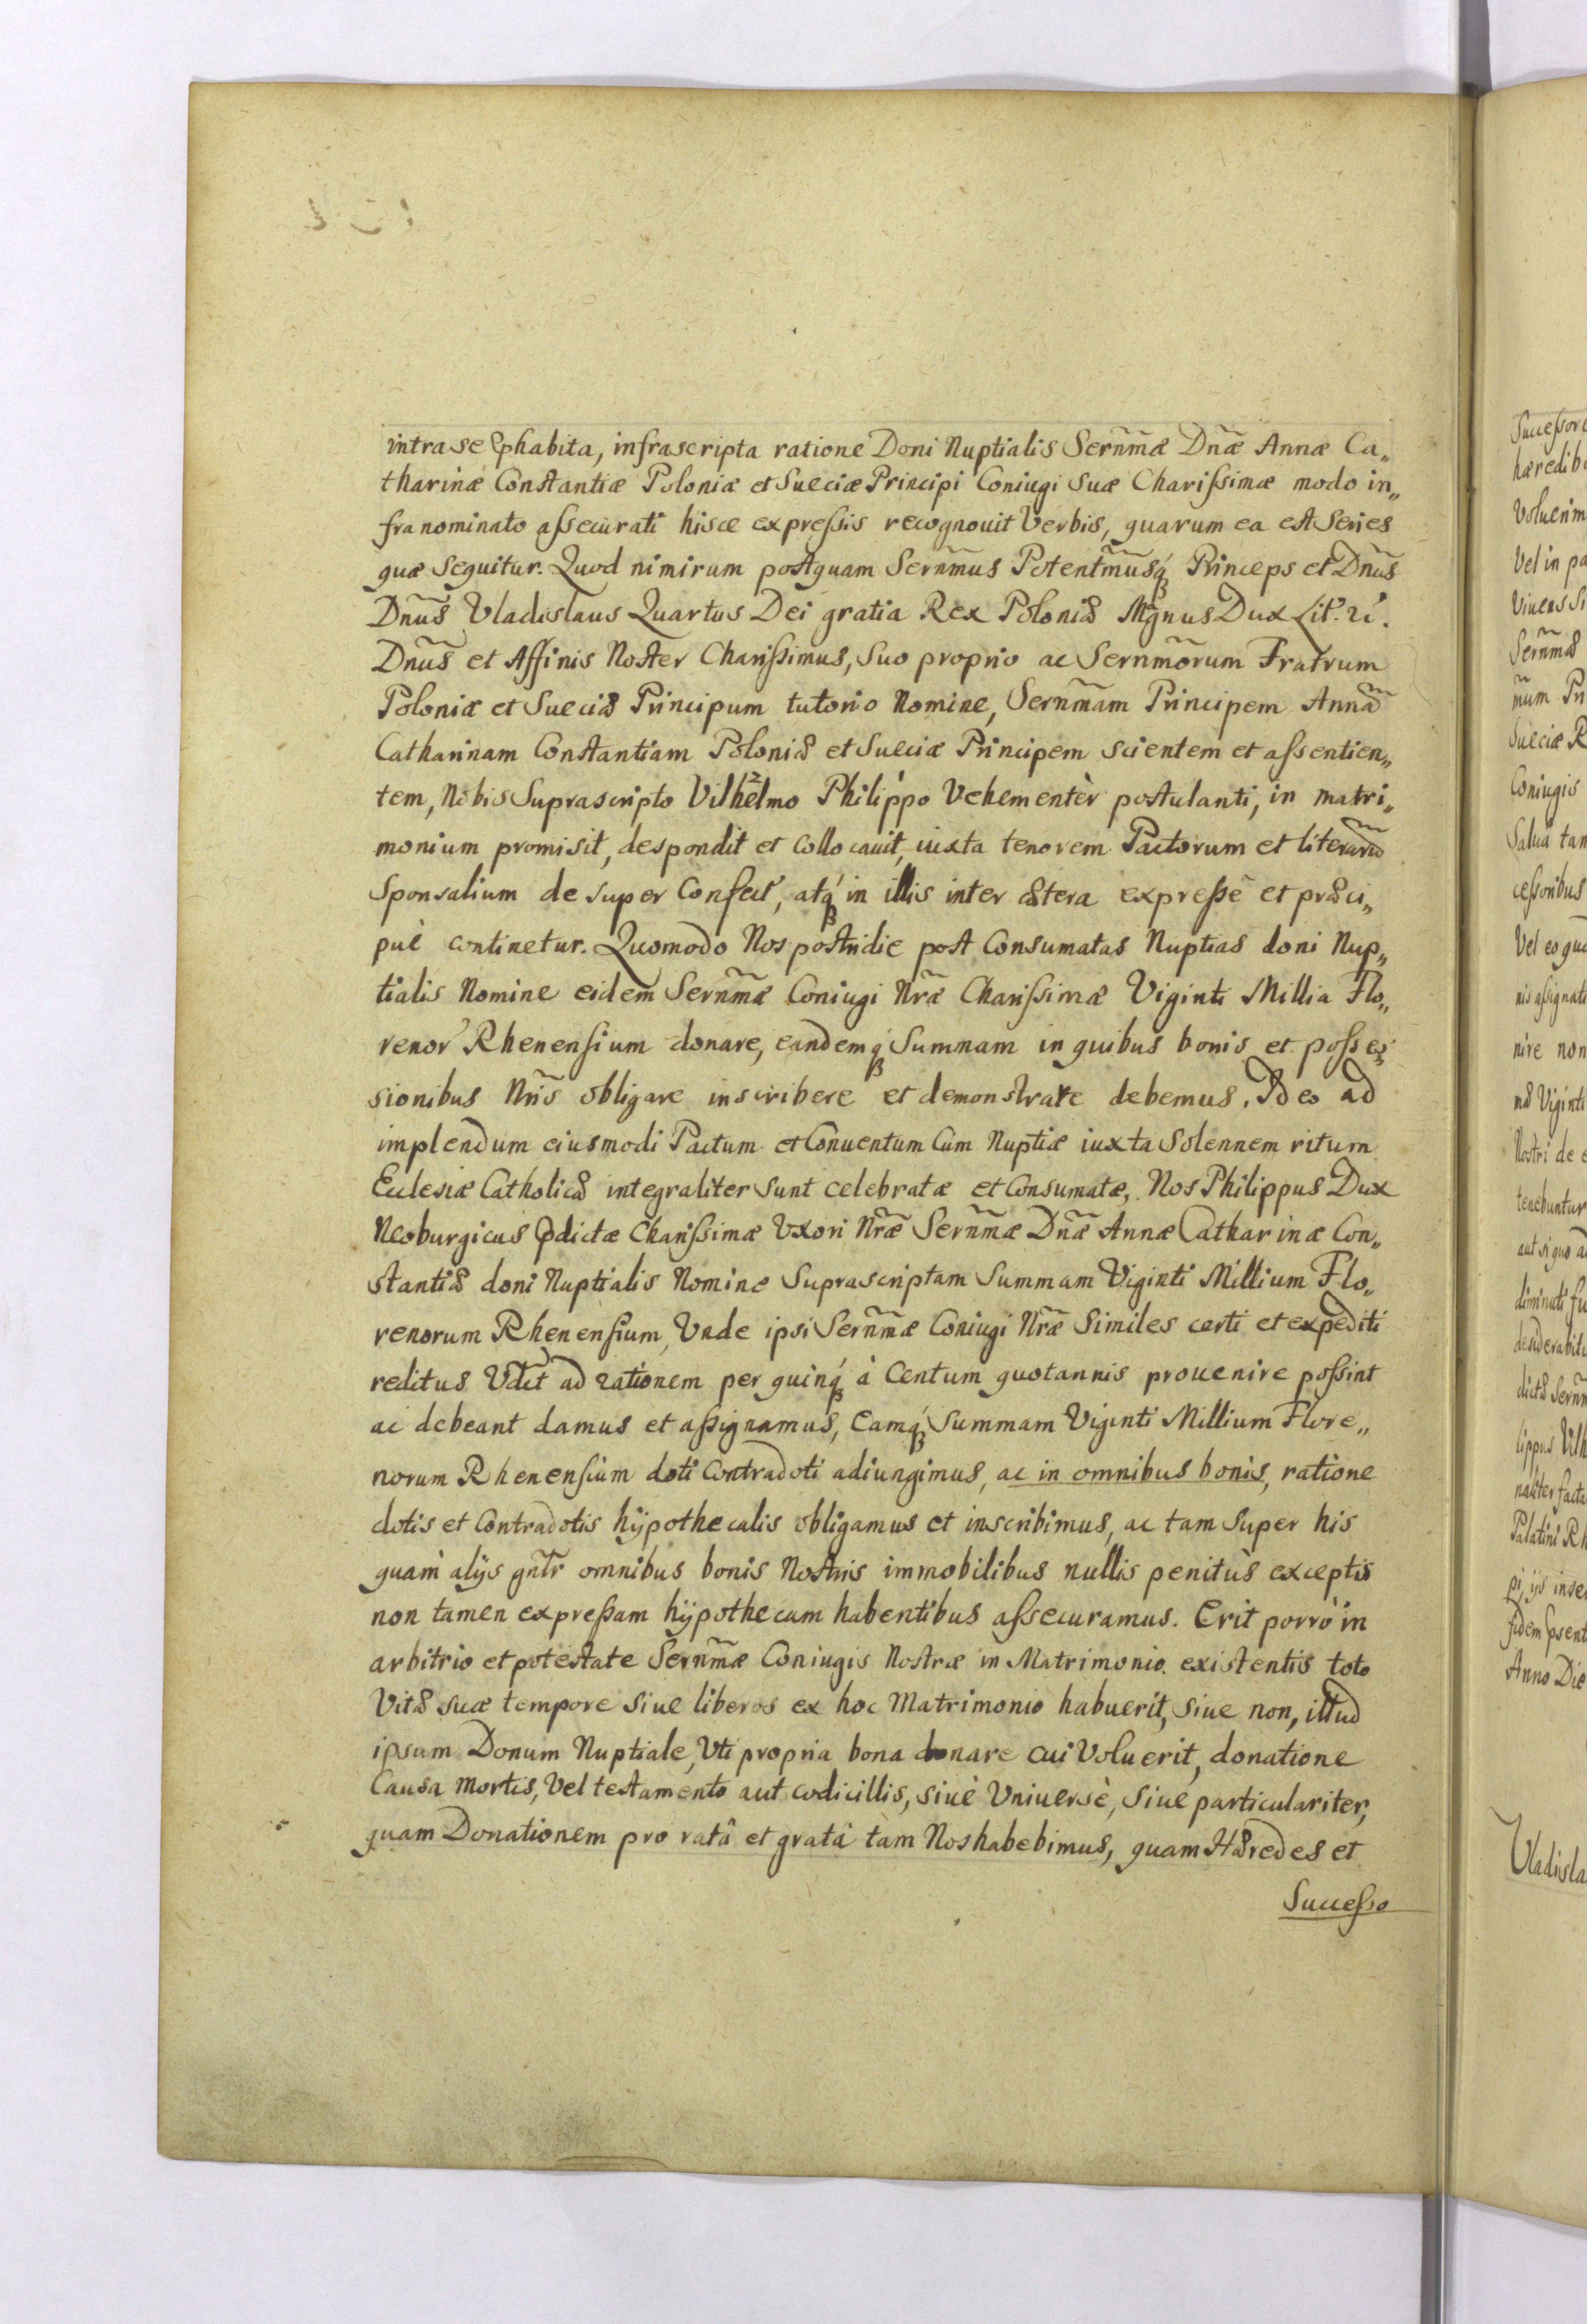 intra se p̱habita, infrascripta ratione Doni Nuptialis Sernm̃æ Dnæ̃ Annæ Ca„
tharinæ Constantiæ Poloniæ et Sueciæ Principi Coniugi Suæ Charißimæ modo in„
fra nominato aßecurati hisce expreßis recognouit Verbis, quarum ea est Series
quæ Sequitur. Quod nimirum postquam Sernm̃us Potentm̃usq́ Princeps et Dnũs
Dnũs Vladislaus Quartus Dei gratia Rex Poloniæ Mgnus Dux Lit:
Dnũs et Affinis Noster Charißimus, Suo proprio ac Sernmõrum Fratrum
Poloniæ et Sueciæ Principum tutorio Nomine, Sernm̃am Principem Annã
Catharinam Constantiam Poloniæ et Sueciæ Principem scientem et aßentien„
tem, Nobis Suprascripto Vilhelmo Philippo Vehementèr postulanti, in matri„
monium promisit, despondit et collocauit, iuxta tenorem Pactorum et literarũ
Sponsalium de super Confect', atq́ in illis inter cætera expreßè et præci„
puè continetur. Quomodo Nos postridie post Consumatas Nuptias doni Nup„
tialis Nomine eidem Sernm̃æ Coniugi Nræ̃ Charißimæ Viginti Millia Flo„
renor' Rhenensium donare, eandemq́ Summam in quibus bonis et posses
sionibus Nrĩs obligare inscribere et demonstrare debemus. Ideo ad
implendum eiusmodi Pactum et Conuentum Cum Nuptiæ iuxta Solennem ritum
Ecclesiæ Catholicæ integraliter Sunt celebratæ et Consumatæ, Nos Philippus Dux
Neoburgicus p̱dictæ Charißimæ Vxori Nræ̃ Sernm̃æ Dnæ̃ Annæ Catharinæ Con„
stantiæ doni Nuptialis Nomine Suprascriptam Summam Viginti Millium Flo„
renorum Rhenensium, Vnde ipsi Sernm̃æ Coniugi Nræ̃ Similes certi et expediti
reditus Vdct ad rationem per quinq́ à Centum quotannis prouenire poßint
ac debeant damus et aßignamus, Eamq́ Summam Viginti Millium Flore„
norum Rhenensium doti Contradoti adiungimus, ac in omnibus bonis, ratione
dotis et Contradotis hÿpothecalis obligamus et inscribimus, ac tam Super his
quam alÿs gnlr̃ omnibus bonis Nostris immobilibus nullis penitùs exceptis
non tamen expreßam hÿpothecam habentibus aßecuramus. Erit porrò in
arbitrio et potestate Sernm̃æ Coniugis Nostræ in Matrimonio existentis toto
Vitæ suæ tempore Siue liberos ex hoc Matrimonio habuerit, Siue non, illud
ipsum Donum Nuptiale, Vti propria bona donare cui Voluerit, donatione
Causa Mortis, Vel testamento aut codicillis, siuè Vniuersè, Siue particulariter,
quam Donationem pro ratâ et gratâ tam Nos habebimus, quam Hæredes et
Succeßo
Succeßor
hæredib
Voluerim
Vel in pa
Viuens Si
Sernm̃æ
num Pri
Sueciæ R
Coniugis
Salua tam
ceßoribus
Vel eo qu
nis aßignati
nire non
næ Viginti
Nostri de e
tenebuntur
aut si quo a
diminuti fu
desiderabitu
dictæ Sernm
lippus Vilh
naliter facta
Palatini Rh
pi, ÿs inse
fidem p̱sent
Anno Die
Vladisla